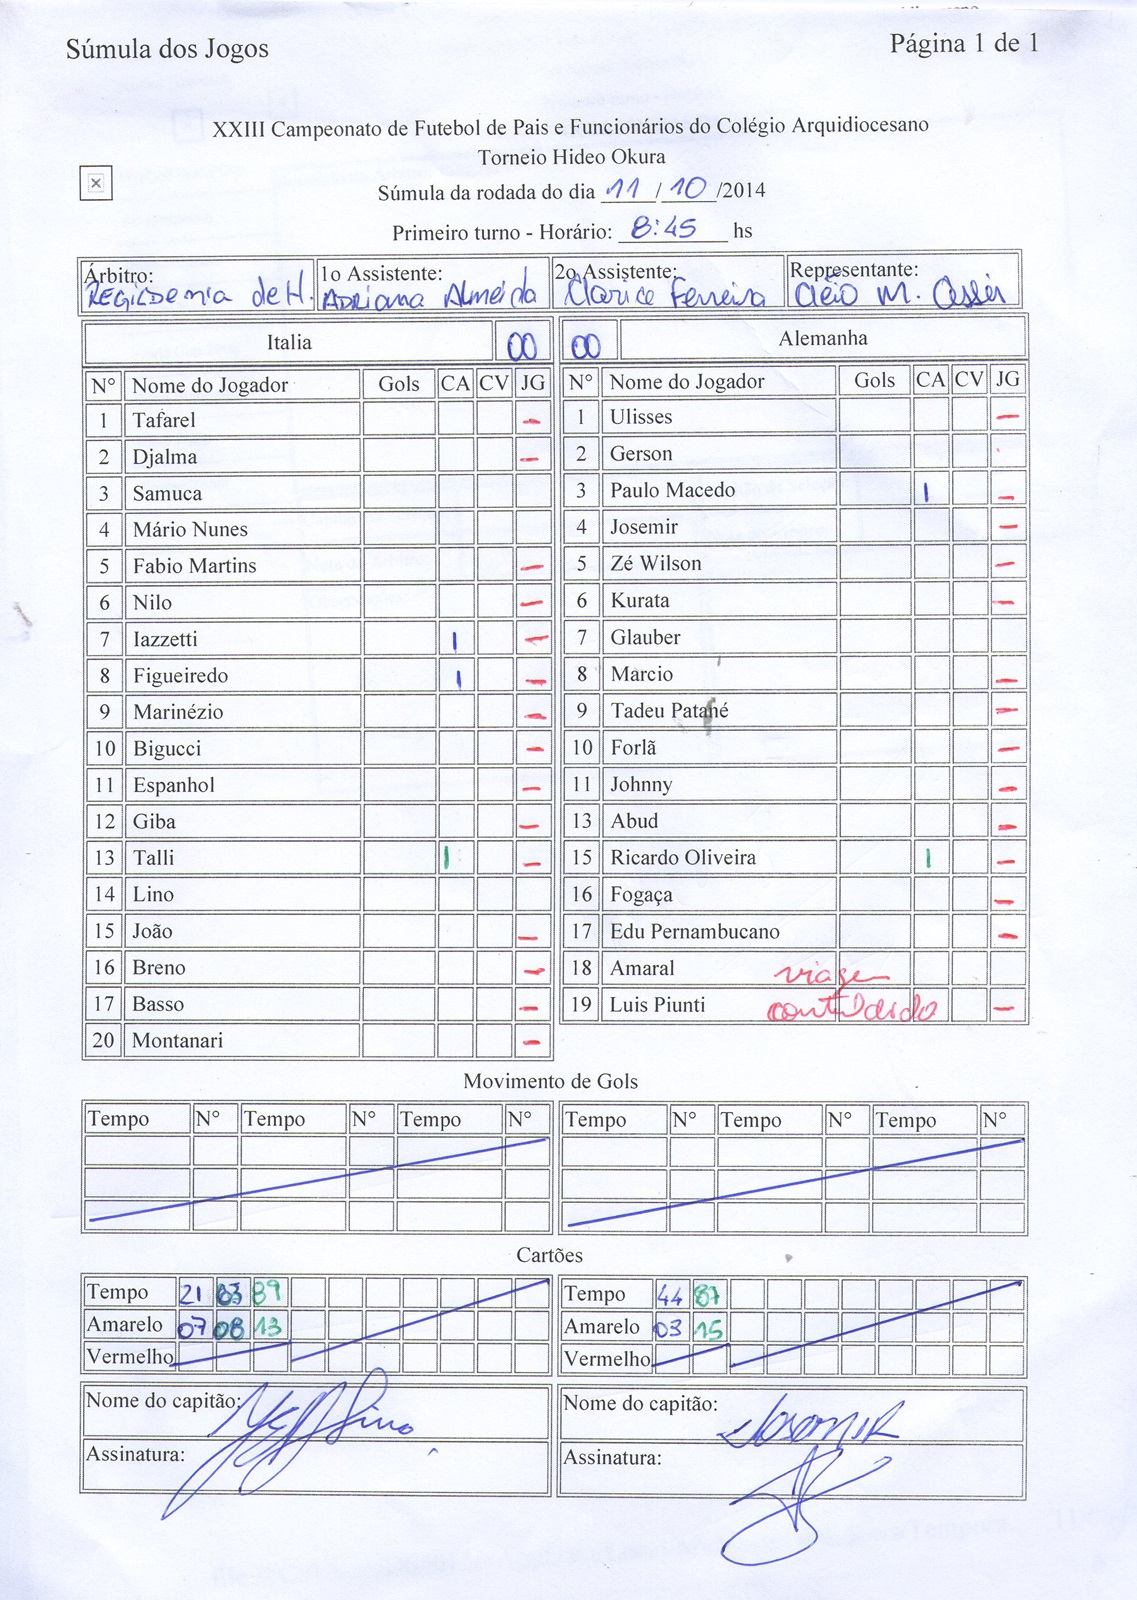 Súmula dos Jogos
Página 1 de 1
XXIII Campeonato de Futebol de Pais e Funcionários do Colégio Arquidiocesano
Torneio Hideo Okura
Súmula da rodada do dia 11/10/2014
Primeiro turno - Horário: 8:45 hs
Árbitro: 1o Assistente: 2o Assistente: Representante:
de H. Adriana Almeida Clarice Ferreira M.
Italia 00 00 Alemanha
N° Nome do Jogador Gols CA CV JG N° Nome do Jogador Gols CA CV JG
1 Tafarel - 1 Ulisses -
2 Djalma - 2 Gerson
3 Samuca 3 Paulo Macedo I -
4 Mário Nunes 4 Josemir -
5 Fabio Martins - 5 Zé Wilson -
6 Nilo - 6 Kurata -
7 Iazzetti I - 7 Glauber
8 Figueiredo I - 8 Marcio -
9 Marinézio - 9 Tadeu Patané -
10 Bigucci - 10 Forlã -
11 Espanhol - 11 Johnny -
12 Giba - 13 Abud -
13 Talli I - 15 Ricardo Oliveira I -
14 Lino 16 Fogaça -
15 João - 17 Edu Pernambucano -
16 Breno - 18 Amaral viagem
17 Basso - 19 Luis Piunti contundido -
20 Montanari -
Movimento de Gols
Tempo N° Tempo N° Tempo N° Tempo N° Tempo N° Tempo N°
Cartões
Tempo 21 83 89 Tempo 44 87
Amarelo 07 08 13 Amarelo 03 15
Vermelho Vermelho
Nome do capitão: Nome do capitão: Josemir
Assinatura: Assinatura: